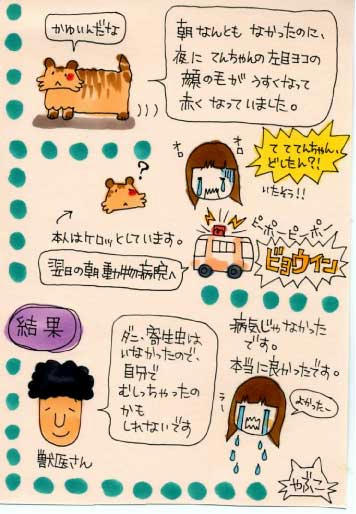 かゆいんだな
朝なんとも なかったのに、
夜に てんちゃんの左目ヨコの
顔の毛が うすくなって
赤く なっていました。
オロ
オロ
て てててんちゃん、
どしたん?!
いたそう!!
?
本人はケロッとしています。
翌日の朝 動物病院へ
ピーポーピーポー
ビョウイン
結果
ダニ、寄生虫は
いなかったので、
自分で
むしっちゃったの
かも
しれないです
獣医さん
病気じゃなかった
です。
本当に良かったです。
よかった〜
やぶこ